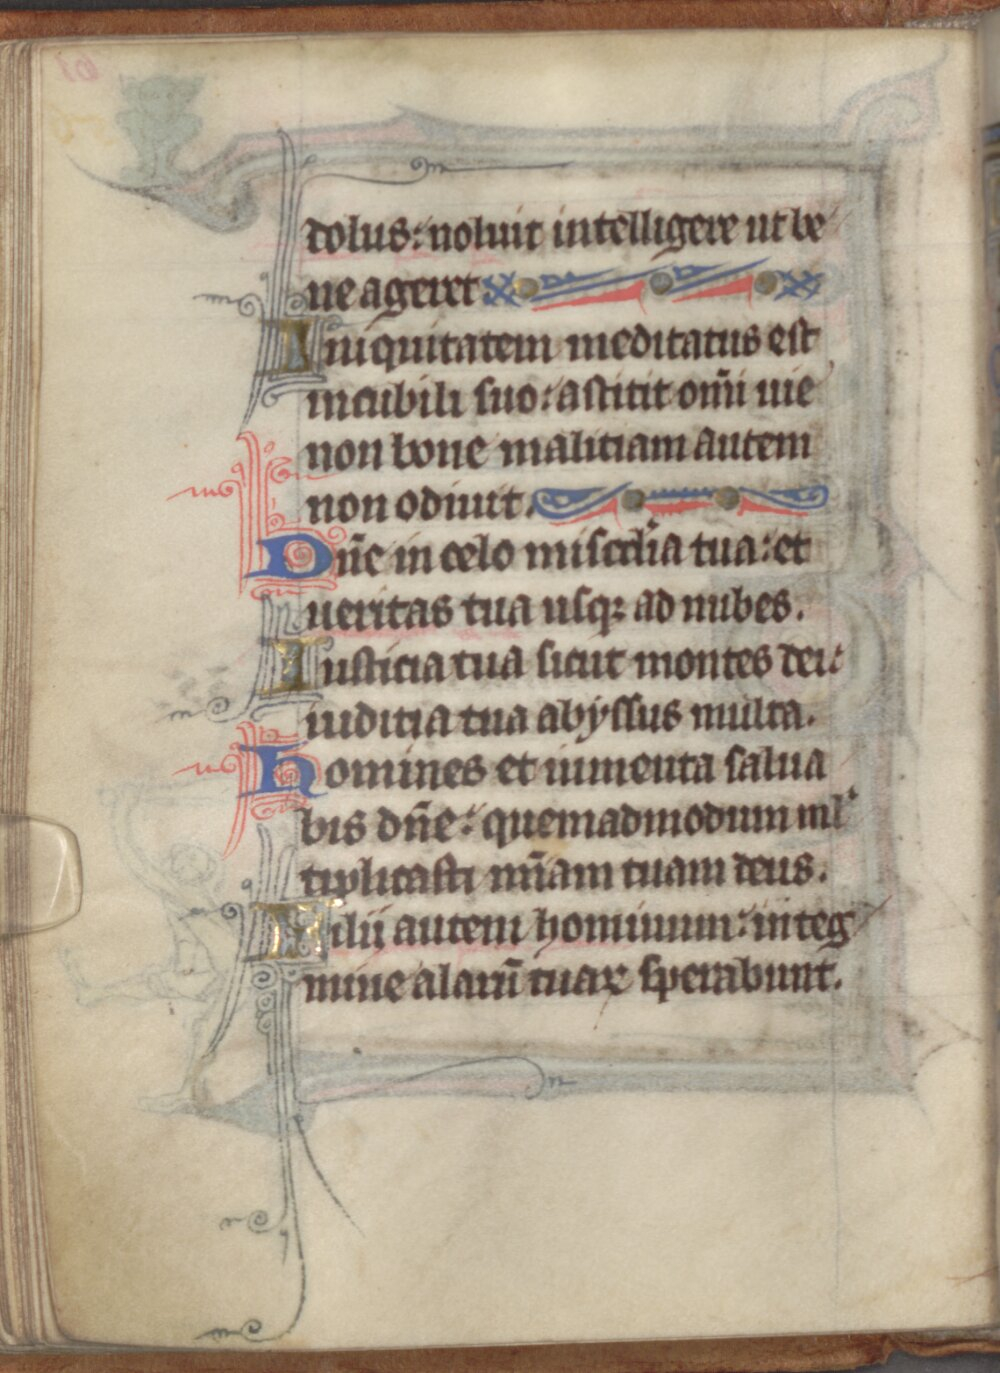 dolus: noluit intelligere ut be
ne ageret
Iniquitatem meditatus est
in cubili suo: astitit om̄i uie
non bone maliciam autem
non odiuit.
Dn̄e in celo misc̄dia tua: et
ueritas tua usqꝫ ad nubes.
Iusticia tua sicut montes dei:
iudicia tua abyssus multa.
Homines et iumenta salua
bis dn̄e: quemadmodum ml̾
tiplicasti mīam tuam deus.
Filii autem hominum: in teg
mine alarū tuaꝝ sperabunt.